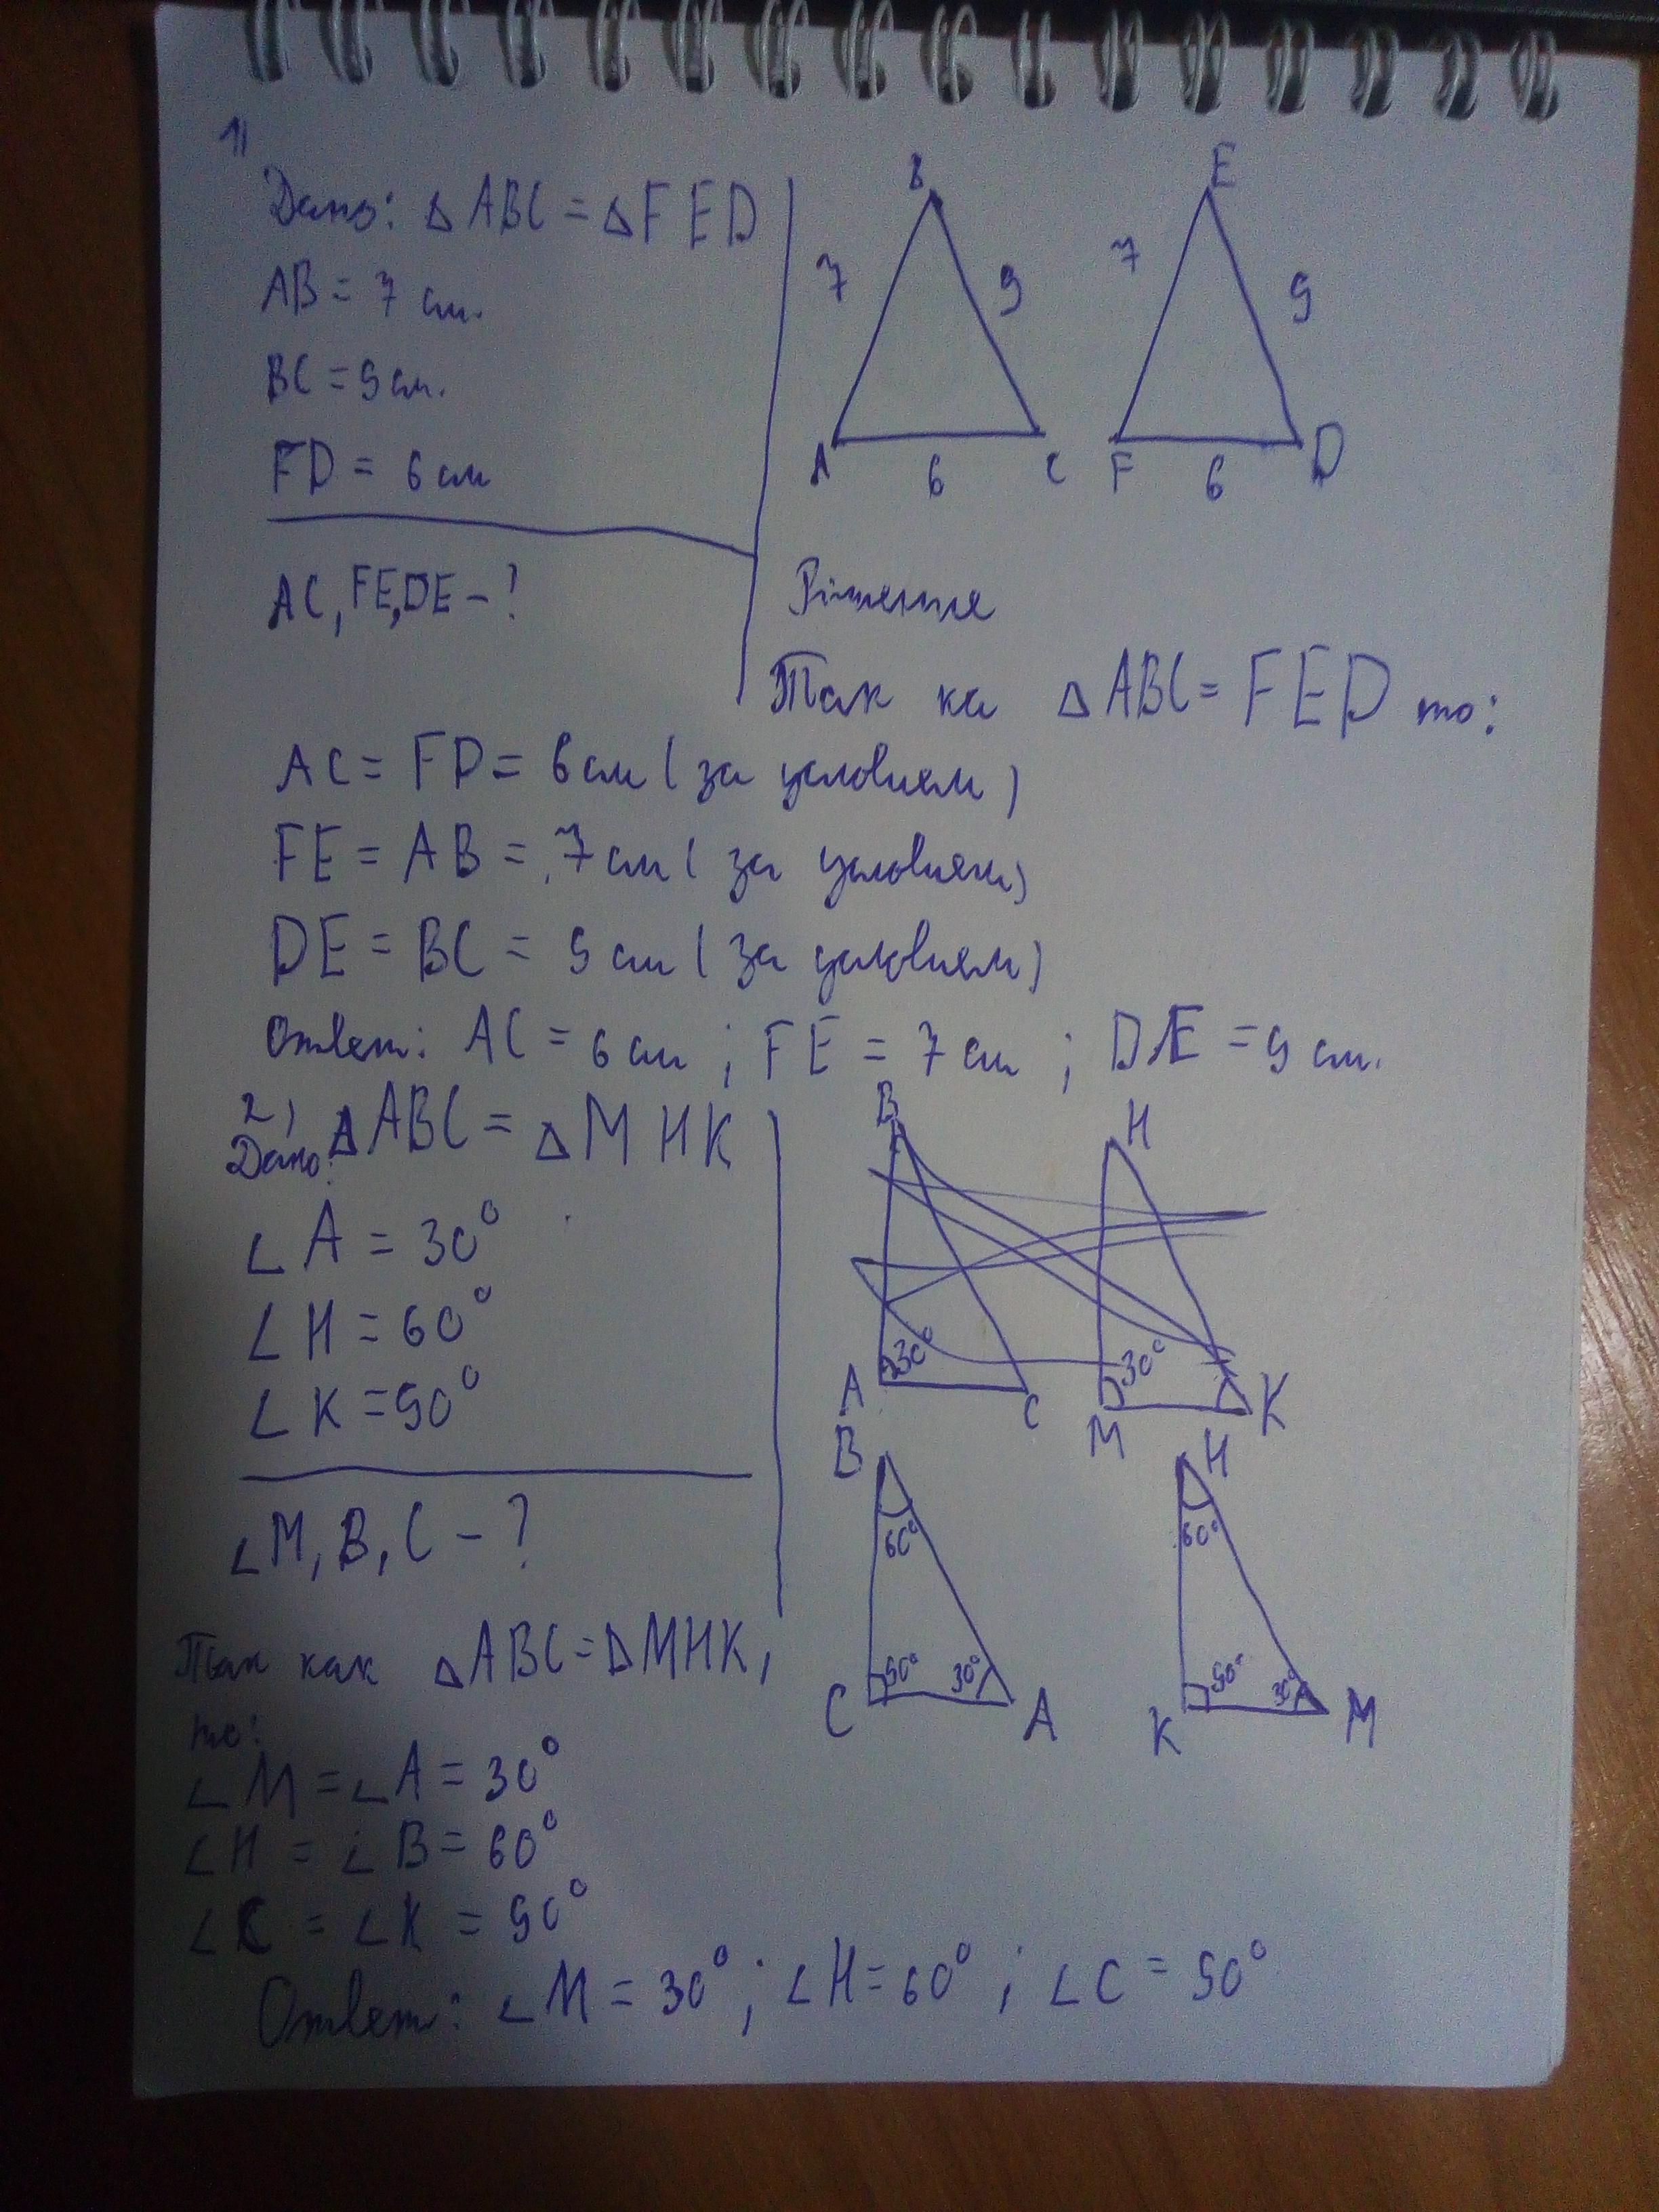 1)
Дано: △ABC = △FED
AB = 7 см.
BC = 9 см.
FD = 6 см
AC, FE, DE - ?
B
7
9
A
6
C
E
7
9
F
6
D
Рішение
Так ка △ABC = FED то:
AC = FD = 6 см ( за условием )
FE = AB = 7 см ( за условием )
DE = BC = 9 см ( за условием )
Ответ: AC = 6 см ; FE = 7 см ; DE = 9 см.
2)
Дано: △ABC = △MHK
∠A = 30°
∠H = 60°
∠K = 90°
∠M, B, C - ?
B
30°
A
C
H
30°
M
K
B
60°
90°
30°
C
A
H
60°
90°
30°
K
M
Так как △ABC = △MHK,
то:
∠M = ∠A = 30°
∠H = ∠B = 60°
∠C = ∠K = 90°
Ответ: ∠M = 30° ; ∠H = 60° ; ∠C = 90°